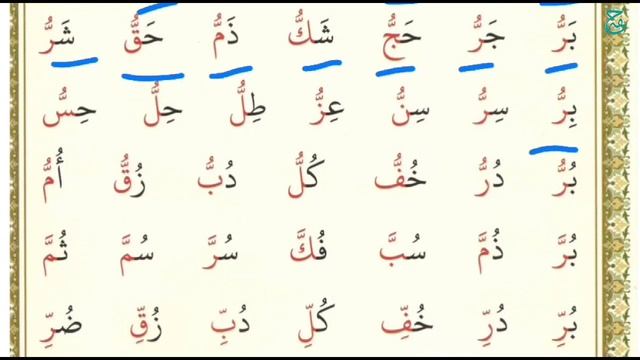 بَرُّ جَرُّ حَجُّ شَكُّ ذَمُّ حَقُّ شَرُّ
بِرُّ سِرُّ سِنُّ عِزُّ طِلُّ حِلُّ حِسُّ
بُرُّ دُرُّ خُفُّ كُلُّ دُبُّ زُقُّ أُمُّ
بُرَّ ذُمَّ سُبَّ فُكَّ سُرَّ سُمَّ ثُمَّ
بُرِّ دُرِّ خُفِّ كُلِّ دُبِّ زُقِّ ضُرِّ